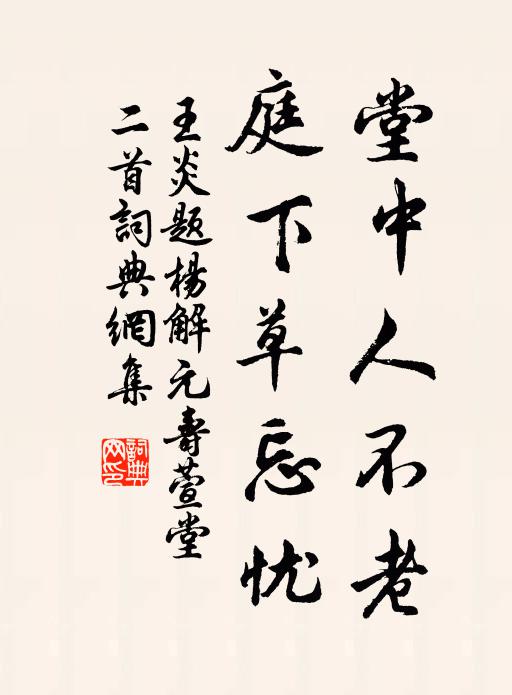 堂中人不老
庭下草忘忧
王炎题杨解元壽萱堂
二首詞典網集
詞典
网印